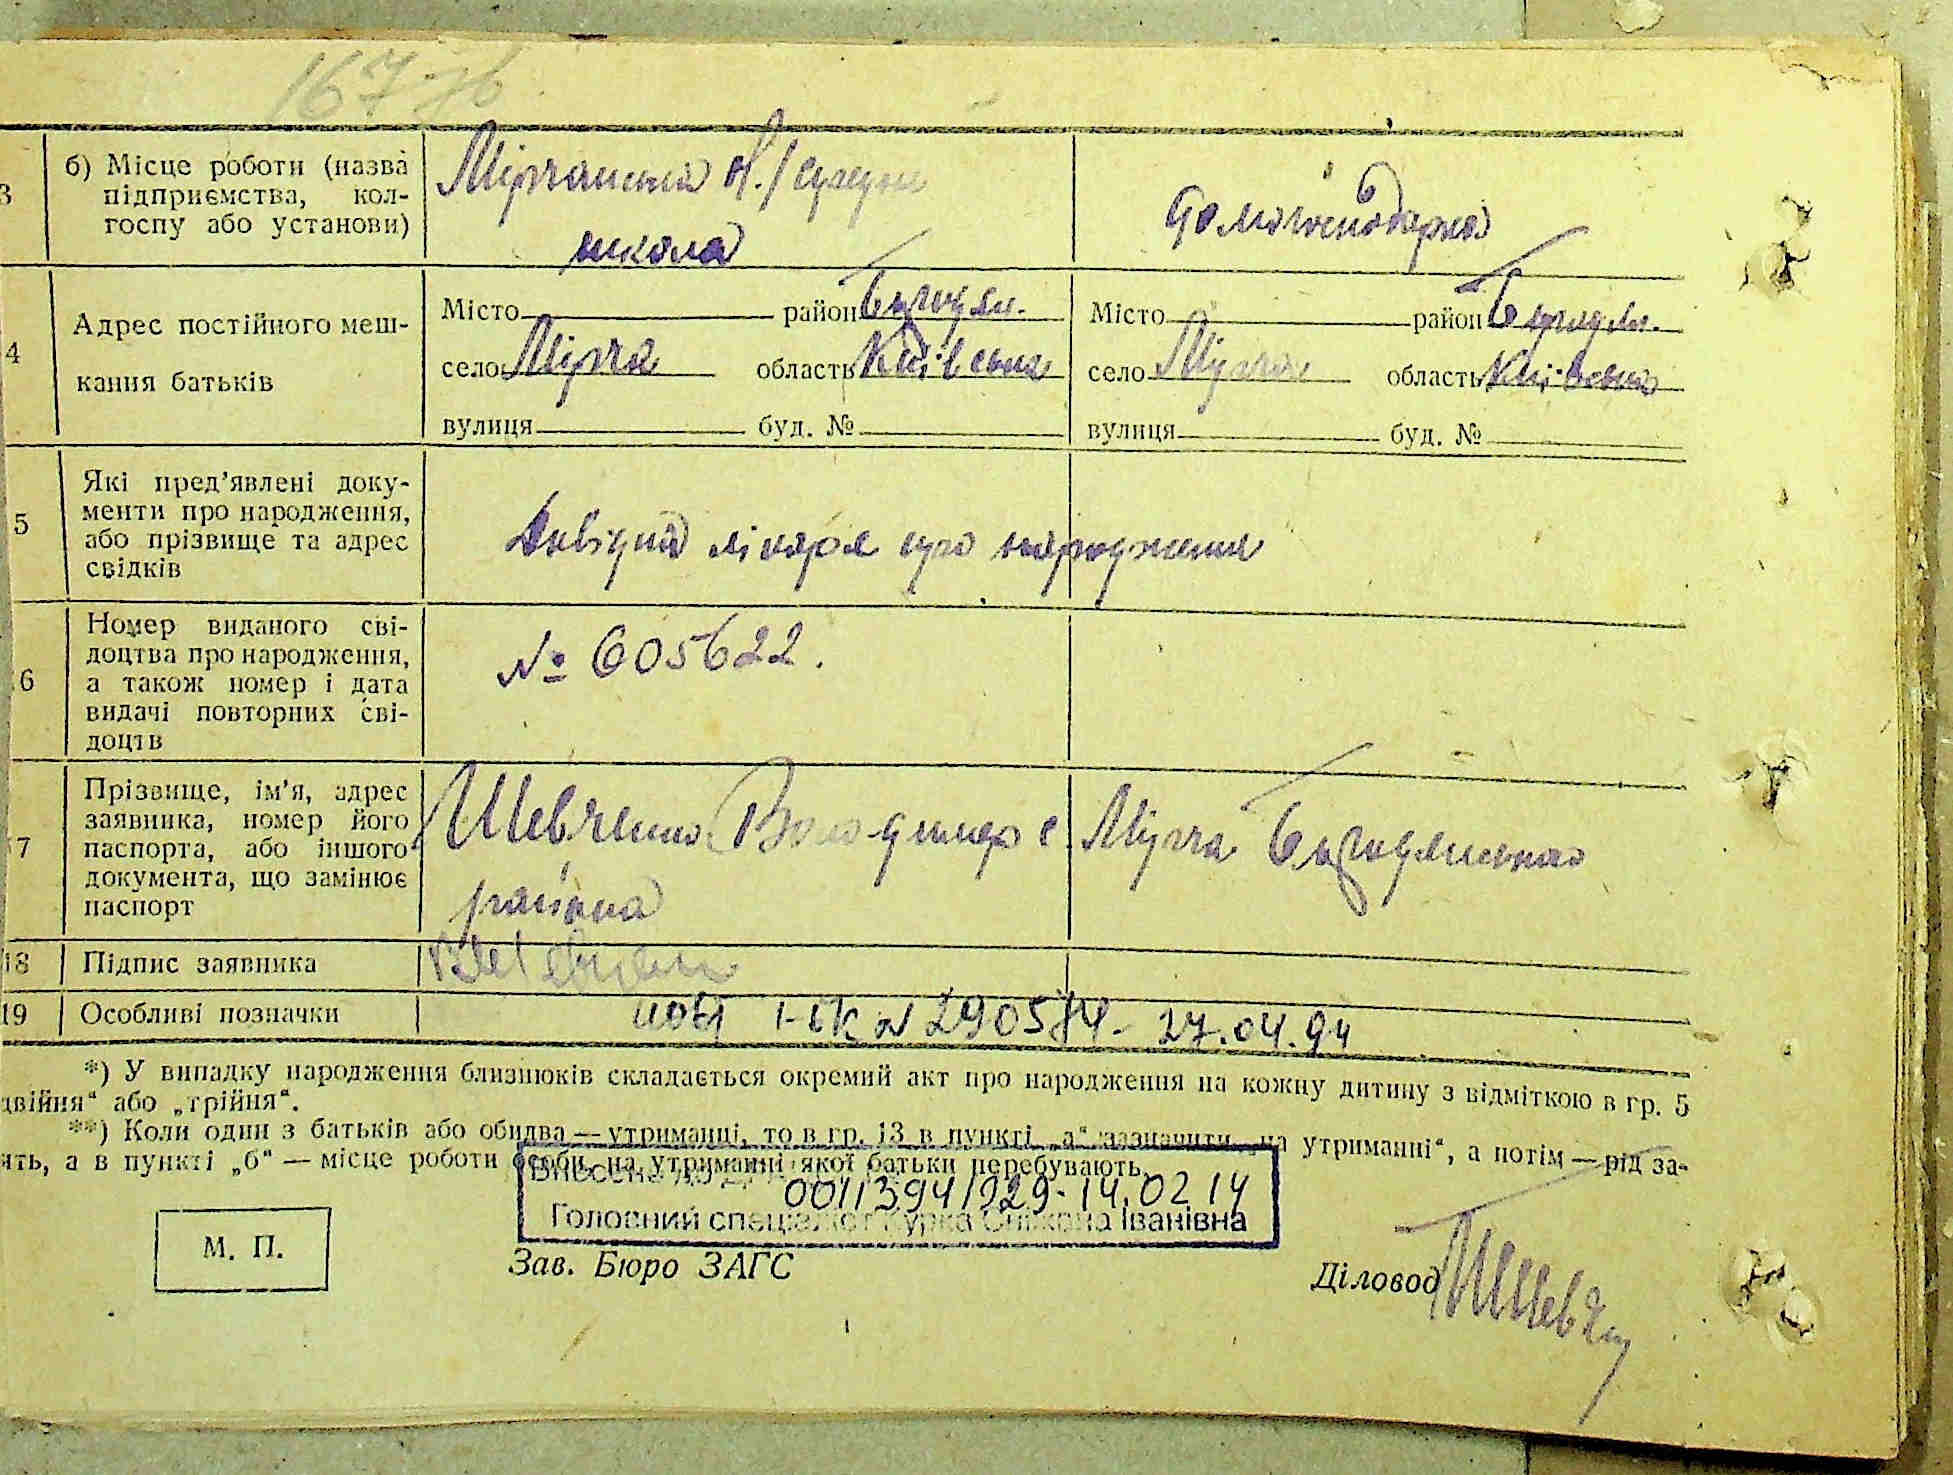 167 зв
3
б) Місце роботи (назва
підприємства, кол-
госпу або установи)
Мірчанська н./середн
школа
домогосподарка
4
Адрес постійного меш-
кання батьків
Місто район Бородян.
село Мірча область Київська
вулиця буд. №
Місто район Бородян.
село Мірча область Київська
вулиця буд. №
5
Які пред’явлені доку-
менти про народження,
або прізвище та адрес
свідків
Довідка лікаря про народження
6
Номер виданого сві-
доцтва про народження,
а також номер і дата
видачі повторних сві-
доцтв
№ 605622.
7
Прізвище, ім’я, адрес
заявника, номер його
паспорта, або іншого
документа, що замінює
паспорт
Шевченко Володимир с. Мірча Бородянського
района
18
Підпис заявника
19
Особливі позначки
повт І-БК № 290574 - 27.04.94
*) У випадку народження близнюків складається окремий акт про народження на кожну дитину з відміткою в гр. 5
двійня“ або „трійня“.
**) Коли один з батьків або обидва — утриманці, то в гр. 13 в пункті „а“ зазначити „на утриманні“, а потім — рід за-
ять, а в пункті „б“ — місце роботи особи, на утриманні якої батьки перебувають.
Внесено до
00113941929 - 14.02 14
Головний спеціаліст Курка Сніжана Іванівна
М. П.
Зав. Бюро ЗАГС
Діловод